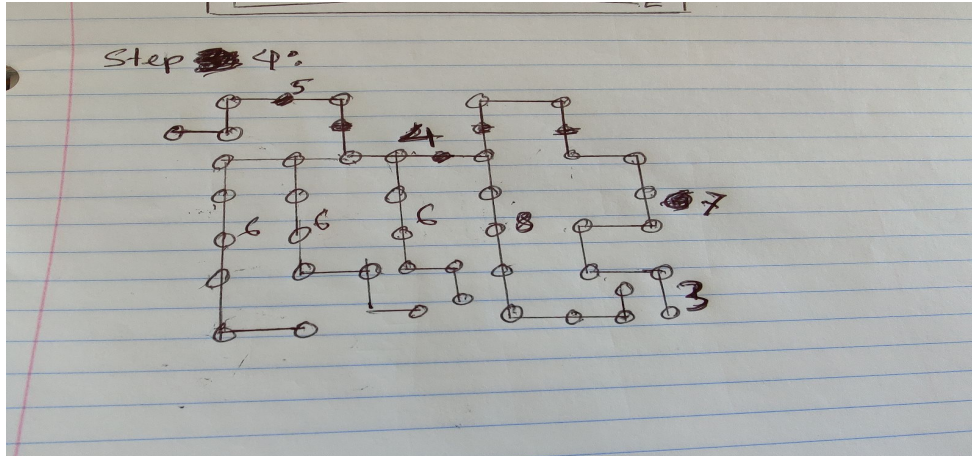 Step 4:
5
4
7
6 6 6 8
3